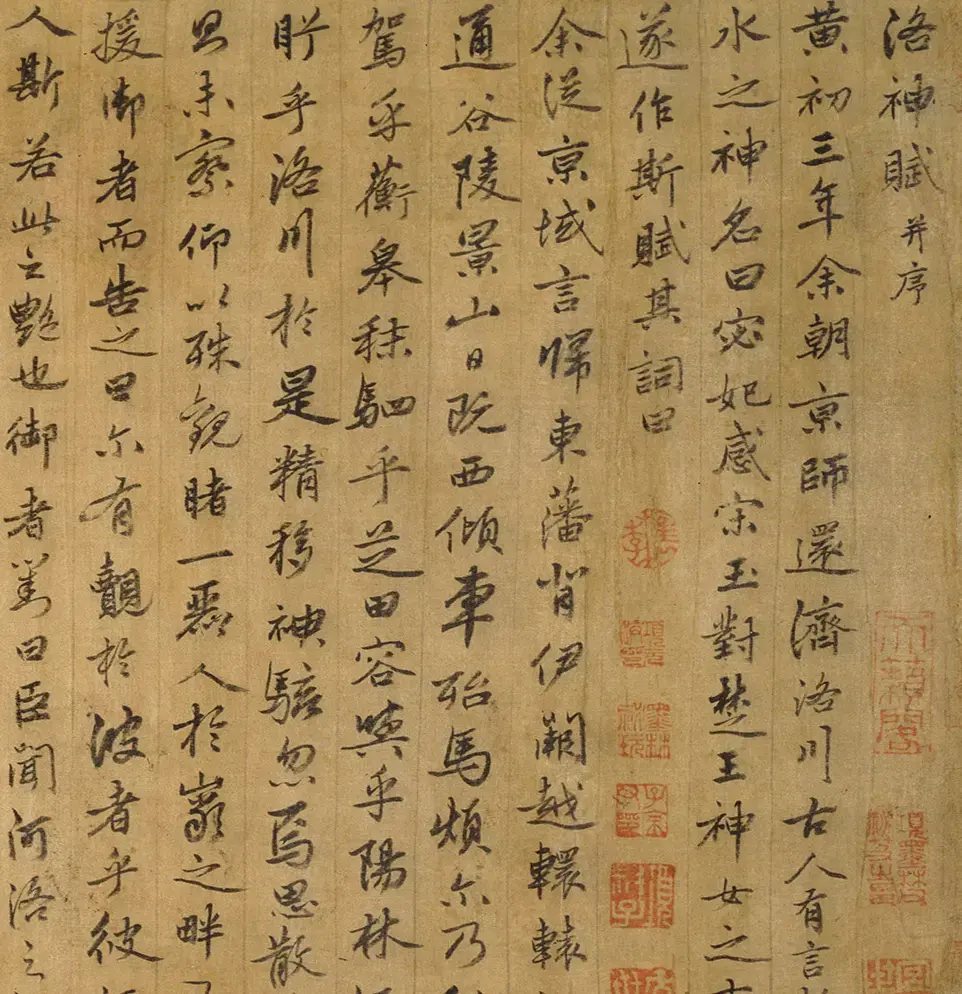 洛神賦并序
黄初三年余朝京師還濟洛川古人有言
水之神名曰宓妃感宋玉對楚王神女之
遂作斯賦其詞曰
余從京域言歸東藩背伊闕越轘轅
通谷陵景山日既西傾車殆馬煩尒乃
駕乎蘅皋秣駟乎芝田容與乎陽林
眄乎洛川於是精移神駭忽焉思散
則未察仰以殊觀睹一麗人於巖之畔
援御者而告之曰尒有覿於彼者乎彼
人斯若此之艷也御者對曰臣聞河洛之